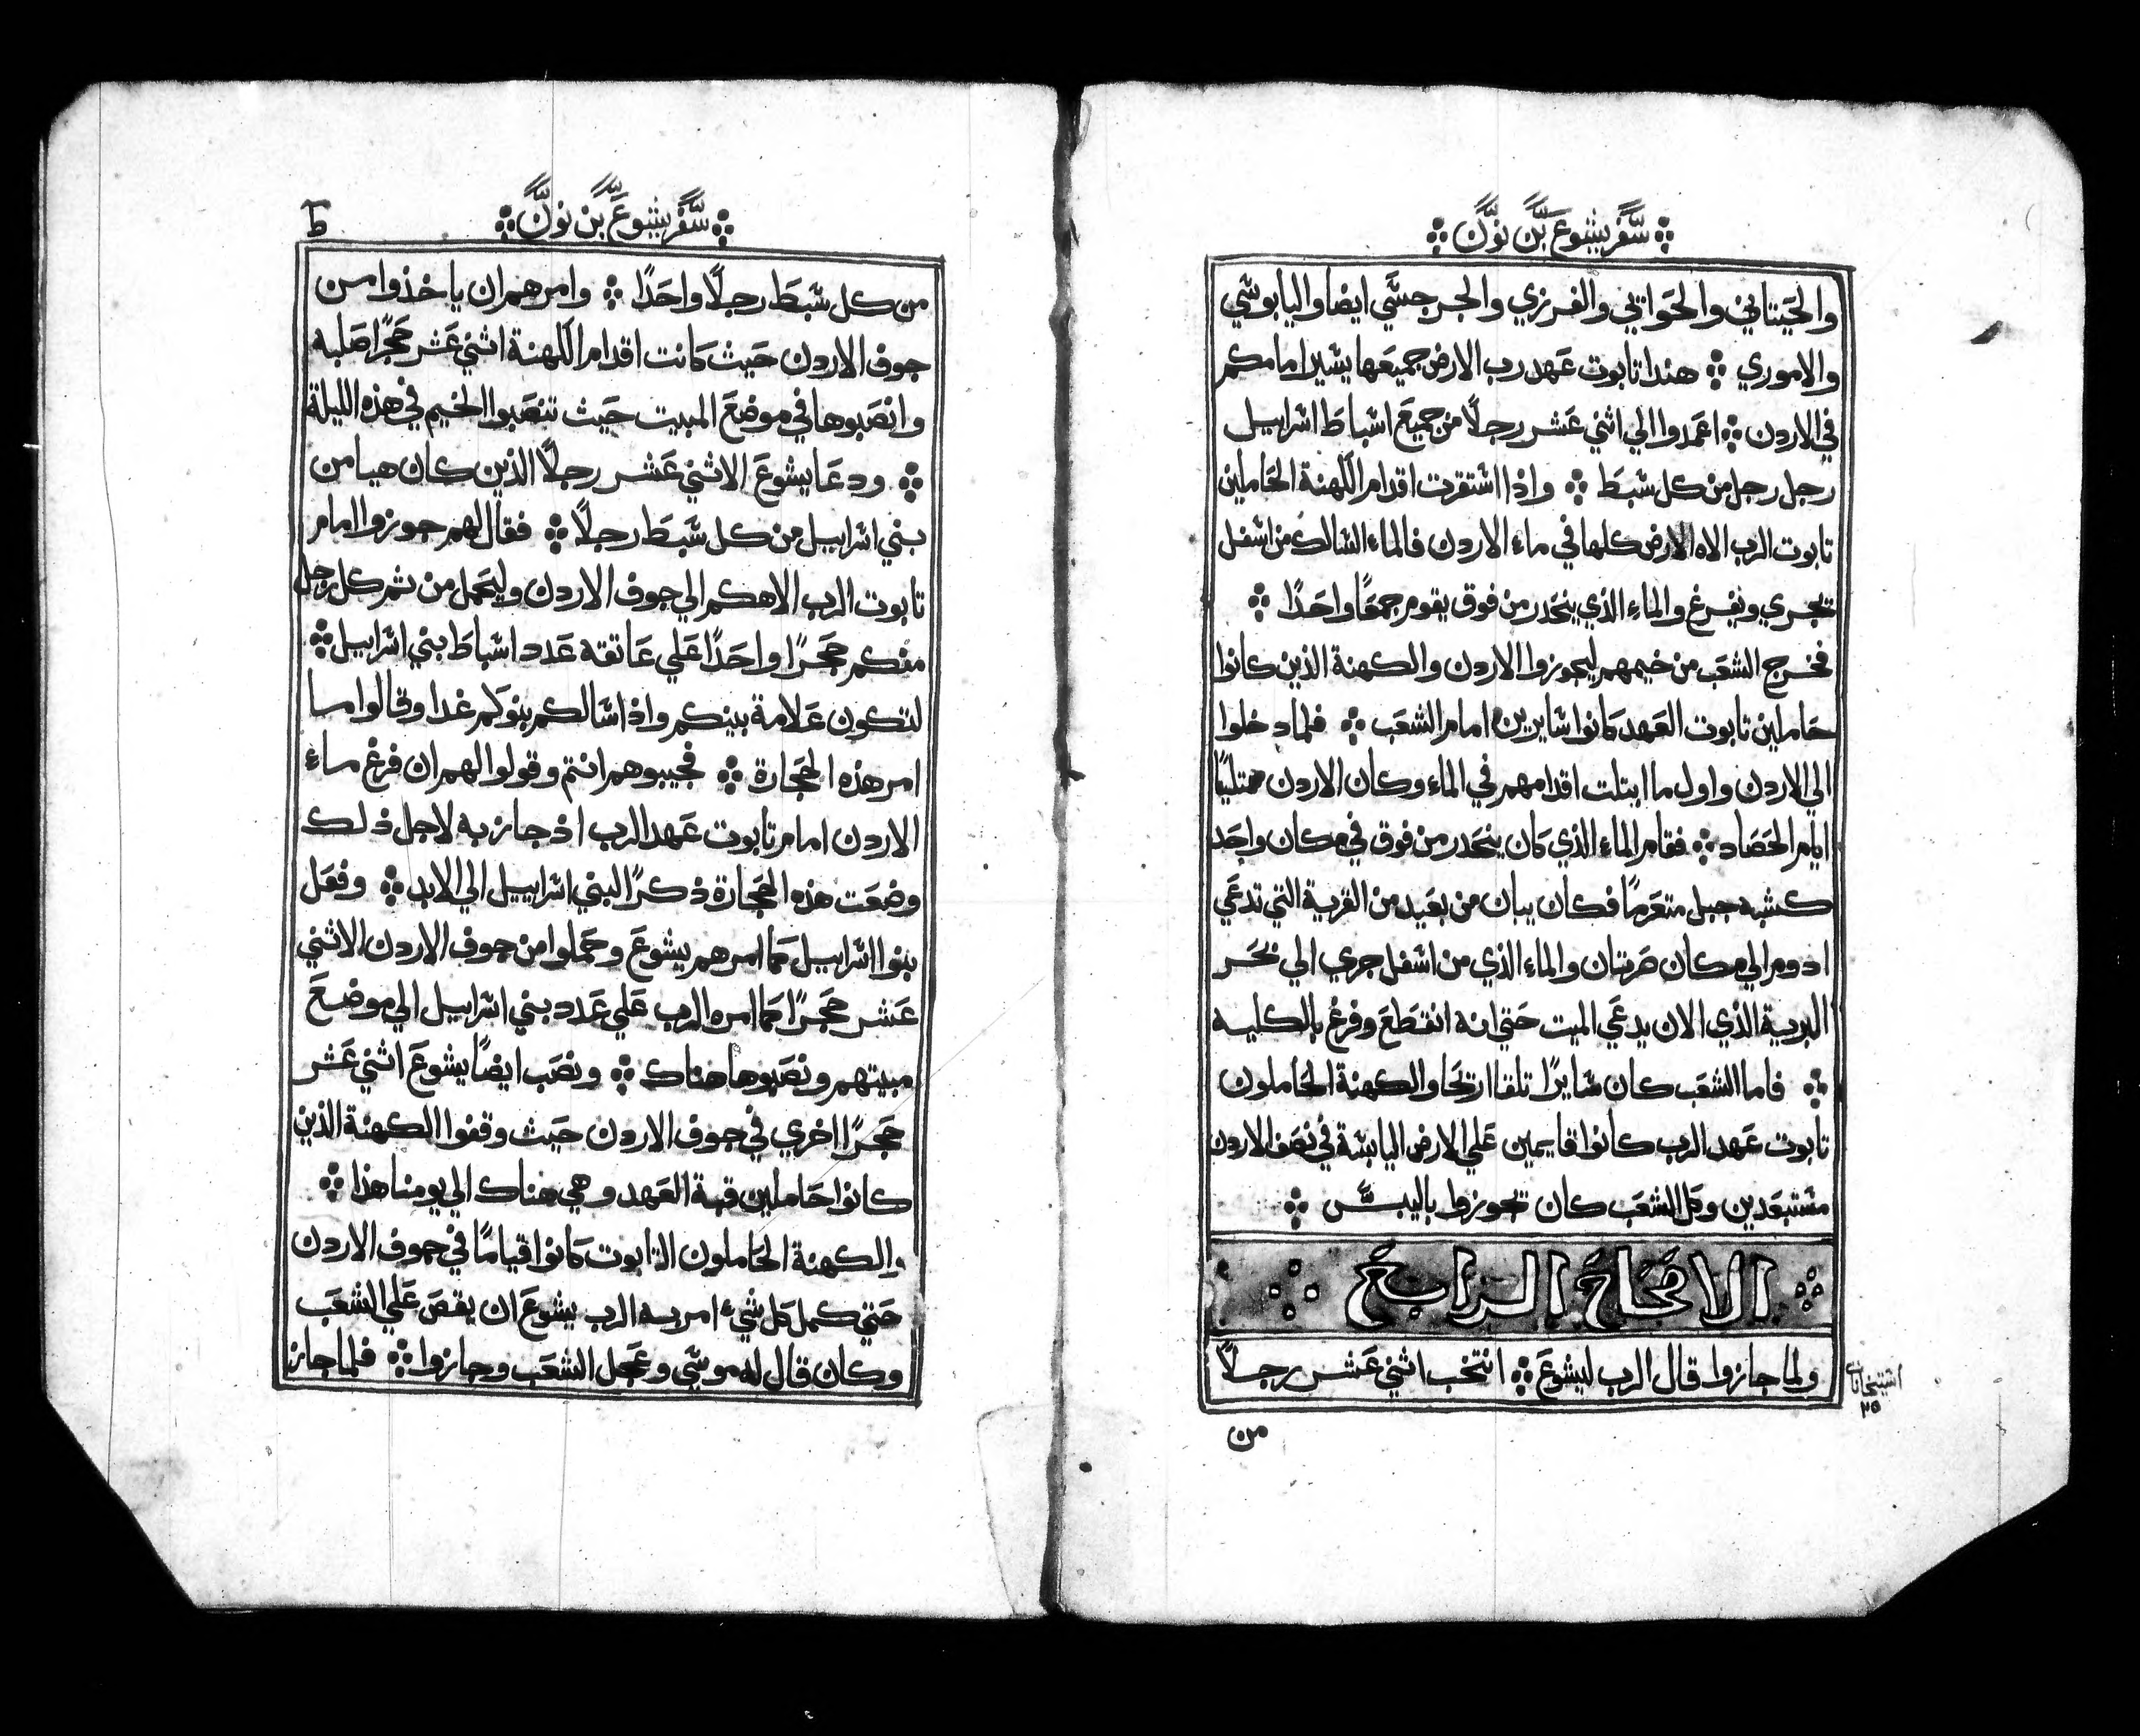 سفر يشوع بن نون
والحيتاني والحواني والفرزي والجرجسي ايضا واليابوسي
والاموري ܀ هندا تابوت عهد رب الارض جميعها يسير امامكم
في الاردن ܀ اعمدوا الي اثني عشر رجلًا من جميع اسباط اسراييل
رجل رجل من كل سبط ܀ واذا استقرت اقدام الكهنة الحاملين
تابوت الرب الاه الارض كلها في ماء الاردن فالماء السالك من اسفل
تجري ويفرغ والماء الذي ينحدر من فوق يقوم جمعًا واحدًا ܀
فخرج الشعب من خيمهم ليجوزوا الاردن والكهنة الذين كانوا
حاملين تابوت العهد كانوا سايرين امام الشعب ܀ فلما دخلوا
الي الاردن واول ما ابتلت اقدامهم في الماء وكان الاردن ممتليًا
ايام الحصاد ܀ فقام الماء الذي كان ينحدر من فوق في مكان واحد
كشبه جبل متعرمًا فكان يبان من بعيد من القرية التي تدعي
ادوم الي مكان صرتان والماء الذي من اسفل جري الي بحر
البرية الذي الان يدعي الميت حتي انه انقطع وفرغ بالكليه
܀ فاما الشعب كان سايرًا تلقا اريحا والكهنة الحاملون
تابوت عهد الرب كانوا قايمين علي الارض اليابسة في نصف الاردن
مستبعدين وكل الشعب كان تجوزوا باليبس ܀
الاصحاح الرابع
ولما جازوا قال الرب ليشوع ܀ انتخب اثني عشر رجلًا
٢٥
من
سفر يشوع بن نون
ط
من كل سبط رجلًا واحدًا ܀ وامرهم ان ياخذوا من
جوف الاردن حيث كانت اقدام الكهنة اثني عشر حجرًا صلبه
وانصبوها في موضع المبيت حيث تنصبوا الخيم في هذه الليلة
܀ ودعا يشوع الاثني عشر رجلًا الذين كان هيا من
بني اسراييل من كل سبط رجلًا ܀ فقال لهم جوزوا امام
تابوت الرب الاهكم الي جوف الاردن وليحمل من ثم كل رجل
منكم حجرًا واحدًا علي عاتقه عدد اسباط بني اسراييل ܀
لتكون علامة بينكم واذا سالكم بنوكم غدا وقالوا ما
امر هذه الحجارة ܀ فجيبوهم انتم وقولوا لهم ان فرغ ماء
الاردن امام تابوت عهد الرب اذ جاز به لاجل ذلك
وضعت هذه الحجارة ذكرًا لبني اسراييل الي الابد ܀ وفعل
بنوا اسراييل كما امرهم يشوع وحملوا من جوف الاردن الاثني
عشر حجرًا كما امره الرب علي عدد بني اسراييل الي موضع
مبيتهم ونصبوها هناك ܀ ونصب ايضًا يشوع اثني عشر
حجرًا اخري في جوف الاردن حيث وقفوا الكهنة الذين
كانوا حاملين قبة العهد وهي هناك الي يومنا هذا ܀
والكهنة الحاملون التابوت كانوا قيامًا في جوف الاردن
حتي كمل كل شيء امر به الرب يشوع ان يقص علي الشعب
وكان قال له موسي وعجل الشعب وجازوا ܀ فلما جاز